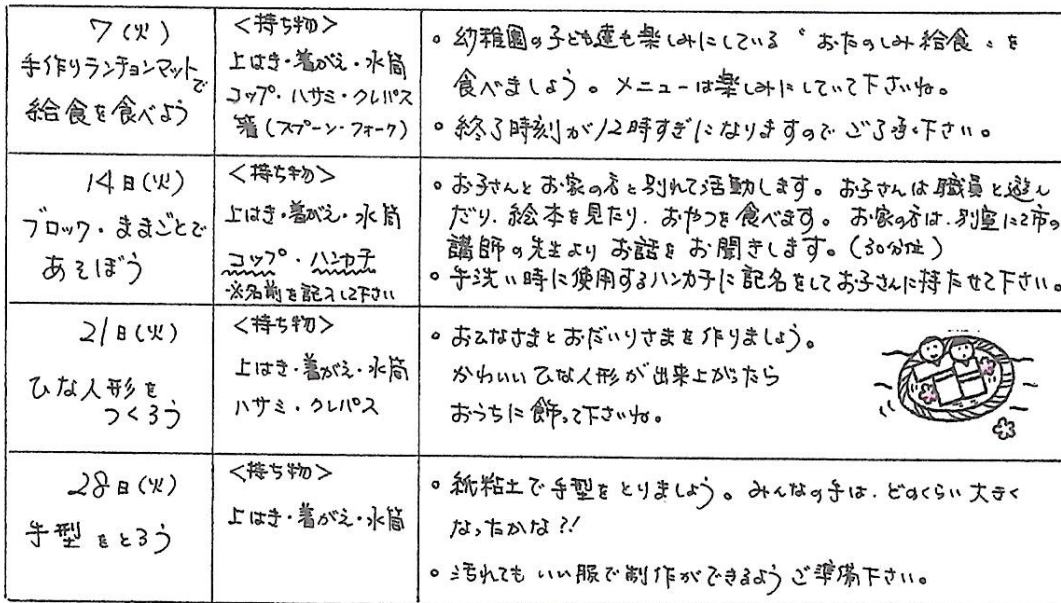 7(火)
手作りランチョンマットで
給食を食べよう
<持ち物>
上はき・着がえ・水筒
コップ・ハサミ・クレパス
箸(スプーン・フォーク)
。幼稚園の子ども達も楽しみにしている〝おたのしみ給食〟を
食べましょう。メニューは楽しみにしていて下さいね。
。終了時刻が12時すぎになりますのでご了承下さい。
14日(火)
ブロック・ままごとで
あそぼう
<持ち物>
上はき・着がえ・水筒
コップ・ハンカチ
※名前を記入して下さい
。お子さんとお家の方と別れて活動します。お子さんは職員と遊ん
だり、絵本を見たり、おやつを食べます。お家の方は、別室にて市の
講師の先生よりお話をお聞きします。(30分位)
。手洗い時に使用するハンカチに記名をしてお子さんに持たせて下さい。
21日(火)
ひな人形を
つくろう
<持ち物>
上はき・着がえ・水筒
ハサミ・クレパス
。おひなさまとおだいりさまを作りましょう。
かわいいひな人形が出来上がったら
おうちに飾って下さいね。
28日(火)
手型をとろう
<持ち物>
上はき・着がえ・水筒
。紙粘土で手型をとりましょう。みんなの手は、どのくらい大きく
なったかな?!
。汚れてもいい服で制作ができるようご準備下さい。